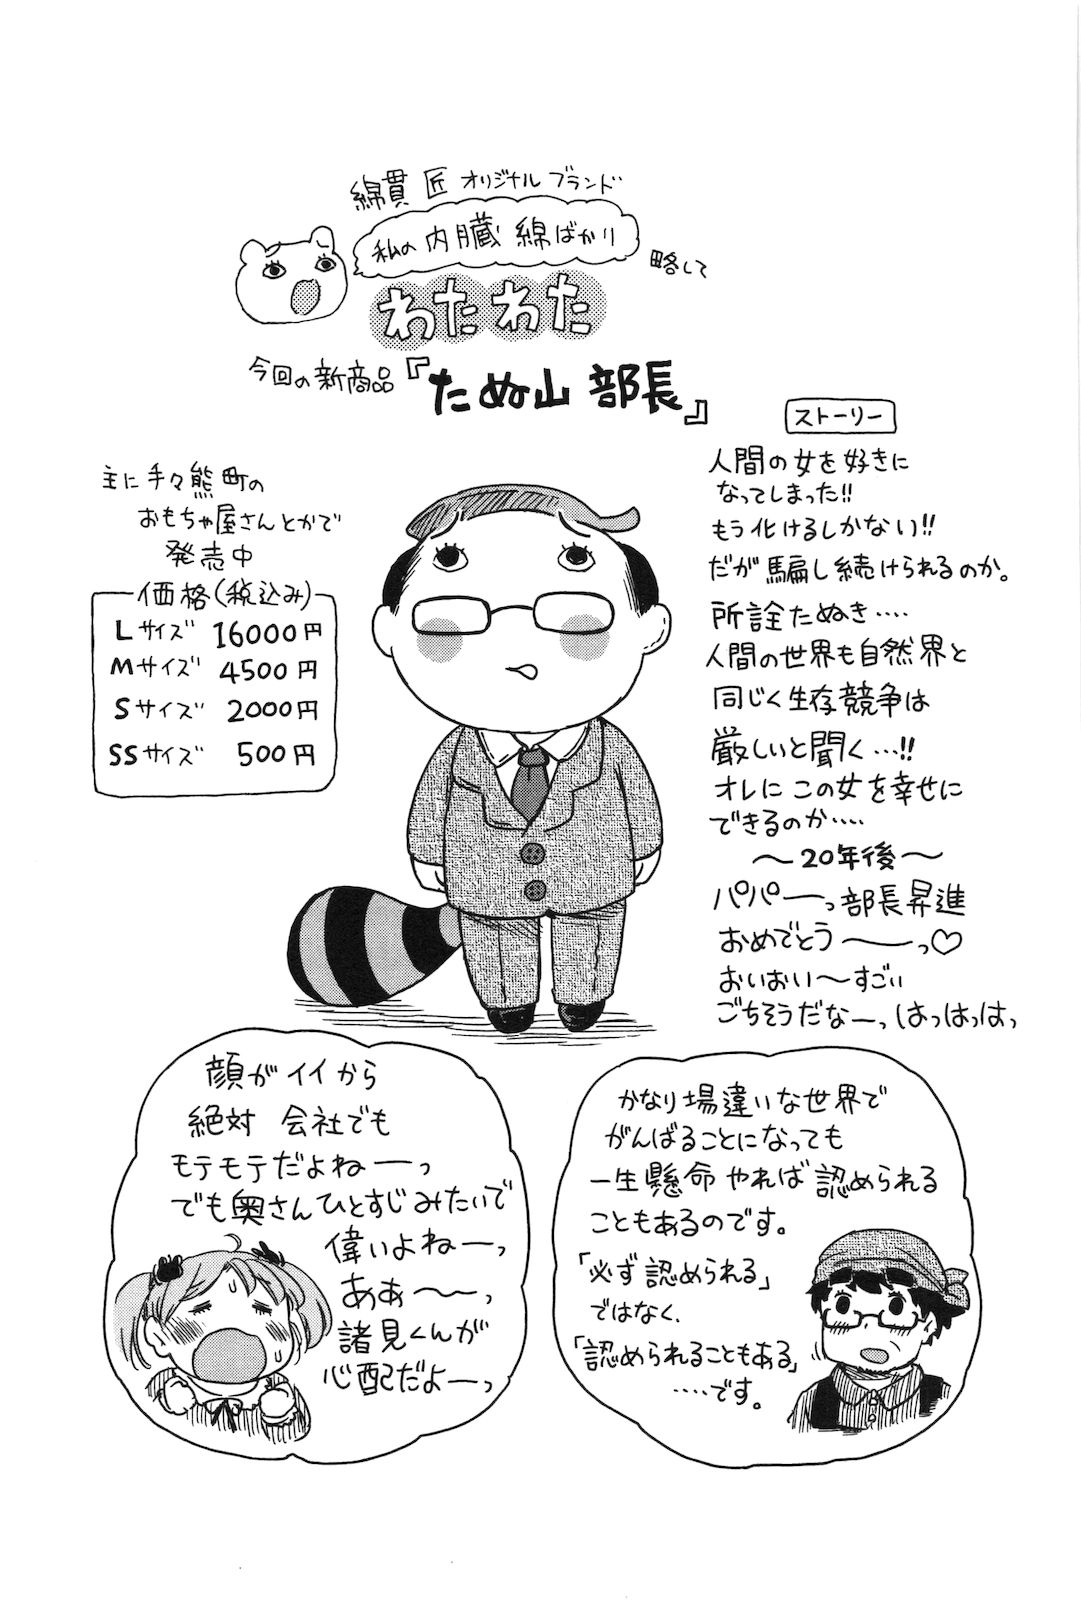 綿貫 匠 オリジナル ブランド
私の 内臓 綿ばかり
略して
わたわた
今回の新商品『たぬ山 部長』
主に手々熊町の
おもちゃ屋さんとかで
発売中
価格(税込み)
Lサイズ 16000円
Mサイズ 4500円
Sサイズ 2000円
SSサイズ 500円
ストーリー
人間の女を好きに
なってしまった!!
もう化けるしかない!!
だが騙し続けられるのか。
所詮たぬき‥‥
人間の世界も自然界と
同じく生存競争は
厳しいと聞く…!!
オレにこの女を幸せに
できるのか‥‥
〜20年後〜
パパーっ部長昇進
おめでとう〜〜っ♡
おいおい〜すごい
ごちそうだなーっはっはっはっ
顔がイイから
絶対 会社でも
モテモテだよねーっ
でも奥さんひとすじみたいで
偉いよねーっ
ああ〜〜っ
諸見くんが
心配だよーっ
かなり場違いな世界で
がんばることになっても
一生懸命やれば認められる
こともあるのです。
「必ず認められる」
ではなく、
「認められることもある」
‥‥です。